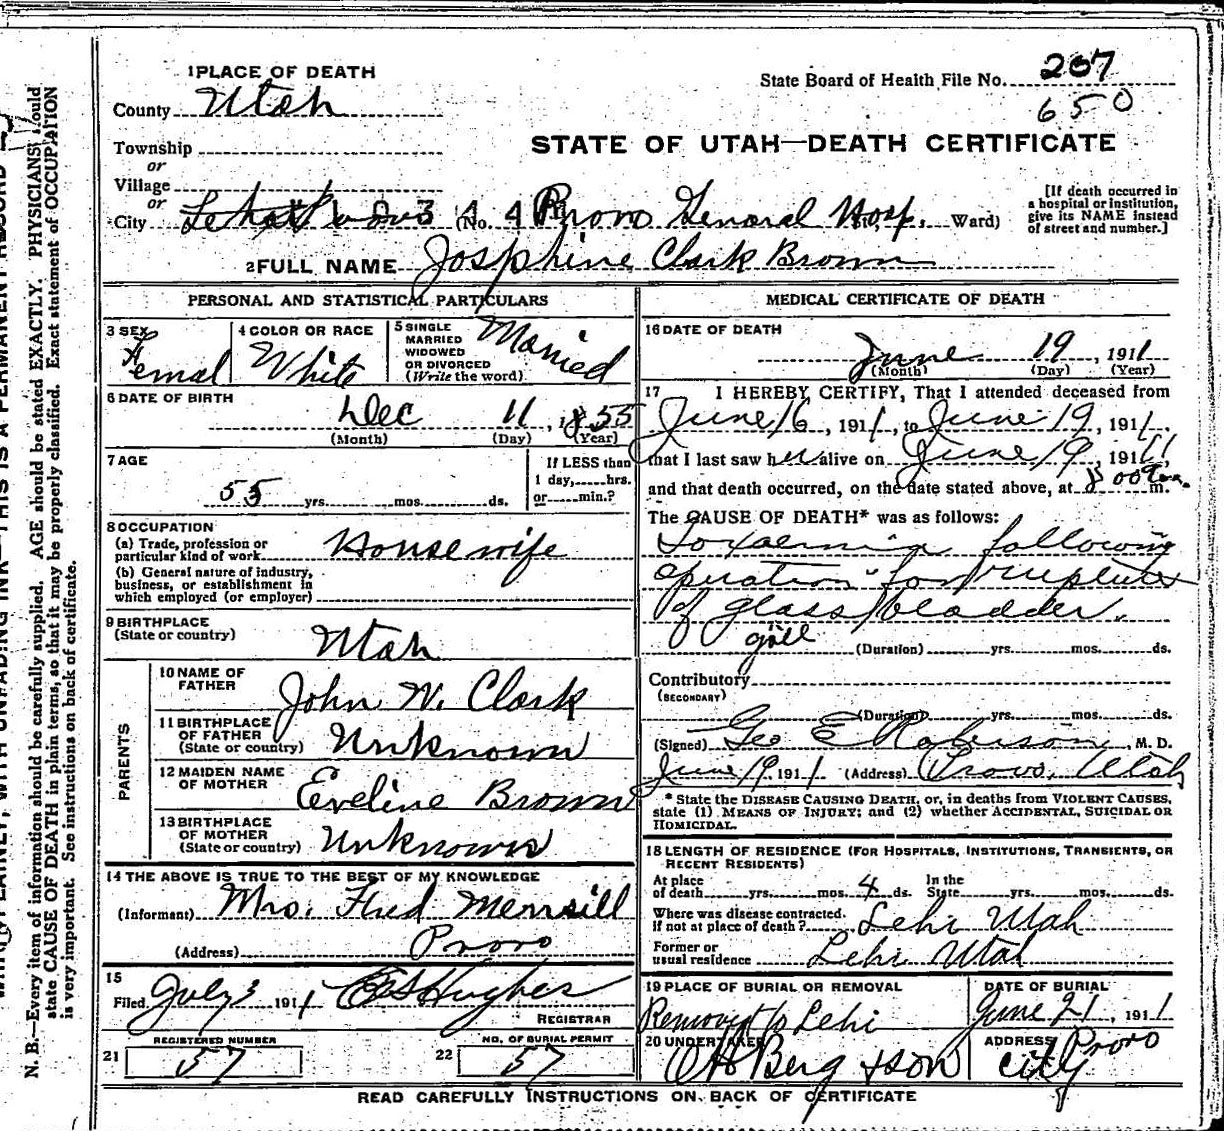 1 PLACE OF DEATH
State Board of Health File No. 207
650
County Utah
STATE OF UTAH—DEATH CERTIFICATE
Township
or
Village
or
City Lehi Provo (No. Provo General Hosp. St., Ward)
[If death occurred in
a hospital or institution,
give its NAME instead
of street and number.]
2 FULL NAME Josphine Clark Brown
PERSONAL AND STATISTICAL PARTICULARS
3 SEX Femal
4 COLOR OR RACE White
5 SINGLE
MARRIED
WIDOWED
OR DIVORCED
(Write the word) Married
6 DATE OF BIRTH
Dec 11, 1855
(Month) (Day) (Year)
7 AGE
55 yrs. mos. ds.
If LESS than
1 day, hrs.
or min.?
8 OCCUPATION
(a) Trade, profession or
particular kind of work Housewife
(b) General nature of industry,
business, or establishment in
which employed (or employer)
9 BIRTHPLACE
(State or country) Utah
PARENTS
10 NAME OF
FATHER John W. Clark
11 BIRTHPLACE
OF FATHER
(State or country) Unknown
12 MAIDEN NAME
OF MOTHER Eveline Brown
13 BIRTHPLACE
OF MOTHER
(State or country) Unknown
14 THE ABOVE IS TRUE TO THE BEST OF MY KNOWLEDGE
(Informant) Mrs. Merrill
(Address) Provo
15
Filed July 3 1911 Hughes
REGISTRAR
21 REGISTERED NUMBER
57
22 NO. OF BURIAL PERMIT
57
MEDICAL CERTIFICATE OF DEATH
16 DATE OF DEATH
June 19, 1911
(Month) (Day) (Year)
17 I HEREBY CERTIFY, That I attended deceased from
June 16, 1911, to June 19, 1911,
that I last saw her alive on June 19, 1911,
and that death occurred, on the date stated above, at 8 00 a m.
The CAUSE OF DEATH* was as follows:
Toxaemia following
operation for rupture
of glass bladder.
gall
(Duration) yrs. mos. ds.
Contributory
(SECONDARY)
(Duration) yrs. mos. ds.
(Signed) Geo E Robison, M. D.
June 19, 1911 (Address) Provo, Utah
* State the DISEASE CAUSING DEATH, or, in deaths from VIOLENT CAUSES,
state (1) MEANS OF INJURY; and (2) whether ACCIDENTAL, SUICIDAL OR
HOMICIDAL.
18 LENGTH OF RESIDENCE (FOR HOSPITALS, INSTITUTIONS, TRANSIENTS, OR
RECENT RESIDENTS)
At place
of death yrs. mos. 4 ds.
In the
State yrs. mos. ds.
Where was disease contracted,
if not at place of death? Lehi Utah
Former or
usual residence Lehi Utah
19 PLACE OF BURIAL OR REMOVAL
Removed to Lehi
DATE OF BURIAL
June 21, 1911
20 UNDERTAKER
Berg & son
ADDRESS Provo
city
READ CAREFULLY INSTRUCTIONS ON BACK OF CERTIFICATE
N. B.—Every item of information should be carefully supplied. AGE should be stated EXACTLY. PHYSICIANS should
state CAUSE OF DEATH in plain terms, so that it may be properly classified. Exact statement of OCCUPATION
is very important. See instructions on back of certificate.